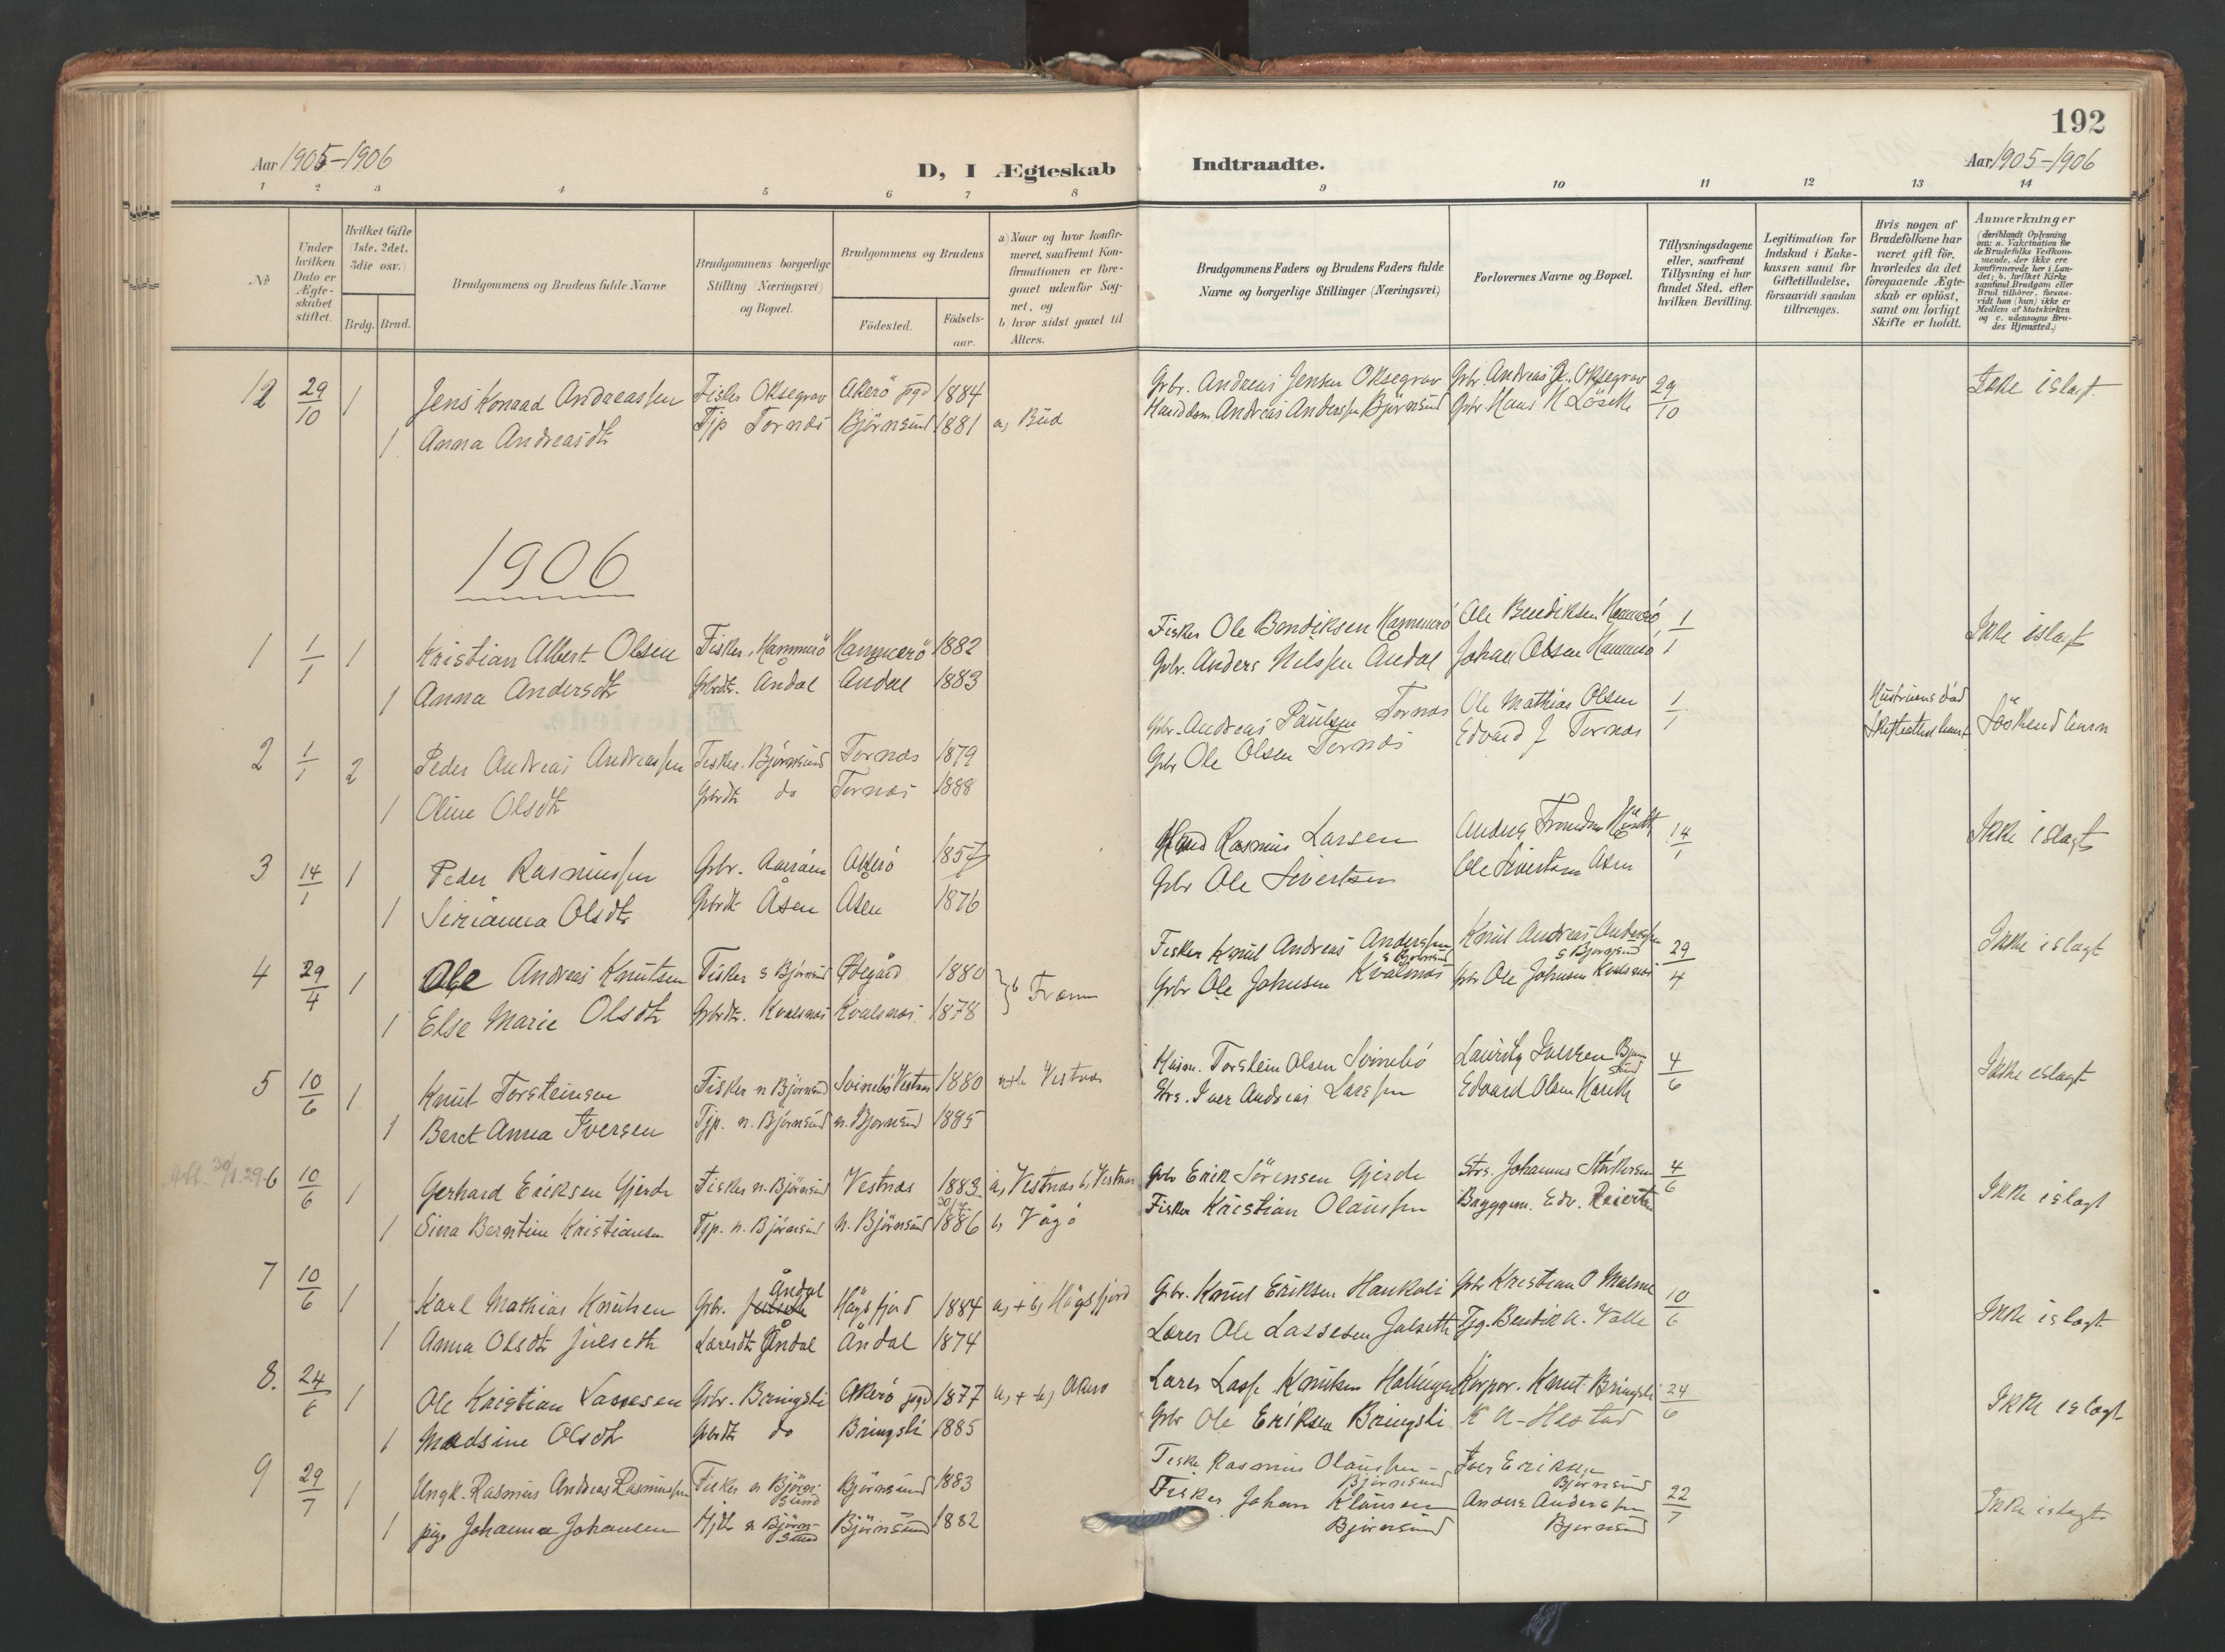 192
Aar 1905-1906
D, I Ægteskab Indtraadte.
Aar 1905-1906
1 2 3 4 5 6 7 8 9 10 11 12 13 14
No
Under hvilken Dato er Ægteskabet stiftet.
Hvilket Gifte (1ste, 2det, 3die osv.)
Brdg. Brud.
Brudgommens og Brudens fulde Navne.
Brudgommens borgerlige Stilling (Næringsvei) og Bopæl.
Brudgommens og Brudens
Fødested. Fødselsaar.
a) Naar og hvor konfirmeret, saafremt Konfirmationen er foregaaet udenfor Sognet, og
b) hvor sidst gaaet til Alters.
Brudgommens Faders og Brudens Faders fulde Navne og borgerlige Stillinger (Næringsvei)
Forlovernes Navne og Bopæl.
Tillysningsdagene eller, saafremt Tillysning ei har fundet Sted, efter hvilken Bevilling.
Legitimation for Indskud i Enkekassen samt for Giftetilladelse, forsaavidt saadan tiltrænges.
Hvis nogen af Brudefolkene har været gift før, hvorledes da det foregaaende Ægteskab er opløst, samt om lovligt Skifte er holdt.
Anmærkninger (deriblandt Oplysning om: a. Vakcination for de Brudefolks Vedkommende, der ikke ere konfirmerede her i Landet; b. hvilket Kirkesamfund Brudgom eller Brud tilhører, forsaavidt han (hun) ikke er Medlem af Statskirken og c. udensogns Brudes Hjemsted.)
12 29/10 1 Jens Konrad Andreassen Fisker Oksegrav Akerö pgd 1884 Gbr. Andreas Jensen Oksegrav Gbr. Andreas J. Oksegrav 29/10 Ikke islægt
1 Anna Andreasdtr Tjp Tornæs Björnsund 1881 a, Bud Andreas Anderssen Björnsund Gbr. Hans K Löseth
1906
1 1/1 1 Kristian Albert Olsen Fisker, Hammerö Hammerö 1882 Fisker Ole Bendiksen Hammerö Ole Bendiksen Hammerö 1/1 Ikke islægt
1 Anna Andersdtr Gbrdtr. Åndal Åndal 1883 Gbr. Anders Nilssen Åndal Johan Olsen Hammerö
2 1/1 2 Peder Andreas Andreassen Fisker. Björnsund Tornæs 1879 Gbr. Andreas Paulsen Tornæs Ole Mathias Olsen 1/1 Hustruens död Söskendbarn
1 Oline Olsdtr Gbrdtr do Tornæs 1888 Gbr Ole Olsen Tornæs Edvard J Tornæs
3 14/1 1 Peder Rasmussen Gbr. Akerö 1857 Rasmus Larsen Anders 14/1 Ikke islægt
1 Sirianna Olsdtr Gbrdtr Åsen Åsen 1876 Gbr Ole Sivertsen Ole Sivertsen Åsen
4 29/4 1 Ole Andreas Knutsen Fisker s Björnsund 1880 } b Fræna Fisker Knut Andreas Anderssen s Björnsund Knut Andreas Anderssen s Björnsund 29/4 Ikke islægt
1 Else Marie Olsdtr Gbrdtr. Kvalsnæs Kvalsnæs 1878 Gbr Ole Johnsen Kvalsnæs Gbr Ole Johnsen Kvalsnæs
5 10/6 1 Knut Torsteinsen Fisker n Björnsund Svinebö Vestnæs 1880 a+b Vestnæs Husm. Torstein Olsen Svinebö Lauritz Iversen Björnsund 4/6 Ikke islægt
1 Beret Anna Iversen Tjp. n. Björnsund n. Björnsund 1885 Strs. Iver Andreas Larssen Edvard Olsen Hareth
6 10/6 1 Gerhard Eriksen Gjerde Fisker n. Björnsund Vestnæs 1883 a, Vestnæs b, Vestnæs Gbr Erik Sörensen Gjerde Strs. Johannes Størkersen 4/6 Ikke islægt
1 Sina Berntine Kristiansen Tjp. n. Björnsund n. Björnsund 1886 b, Vågö Fisker Kristian Olaussen Byggm. Edv.
7 10/6 1 Karl Mathias Knutsen Gbr. Julseth Åndal Hågsfjord 1884 a, + b, Hågsfjord Gbr. Knut Eriksen Haukali Gbr Kristian O Malme 10/6 Ikke islægt
1 Anna Olsdtr Julseth Lærerdtr Åndal Åndal 1874 Lærer Ole Lassesen Julseth Tjg. Bendik A. Valle
8. 24/6 1 Ole Kristian Lassesen Gbr. Bringsli Akerö pgd 1877 a, + b, Akerö Lærer Lasse Knutsen Korpor. Knut Bringsli 24/6 Ikke islægt
1 Madsine Olsdtr Gbrdtr do Bringsli 1885 Gbr Ole Eriksen Bringsli K A-Hestad
9 29/7 1 Ungk. Rasmus Andreas Rasmussen Fisker s Björnsund Björnsund 1883 Fisk. Rasmus Olaussen - Björnsund Iver Eriksen Björnsund 22/7 Ikke islægt
1 pige Johanna Johansen s Björnsund Björnsund 1882 Fisker Johan Klausen Björnsund Anders Anderssen Björnsund